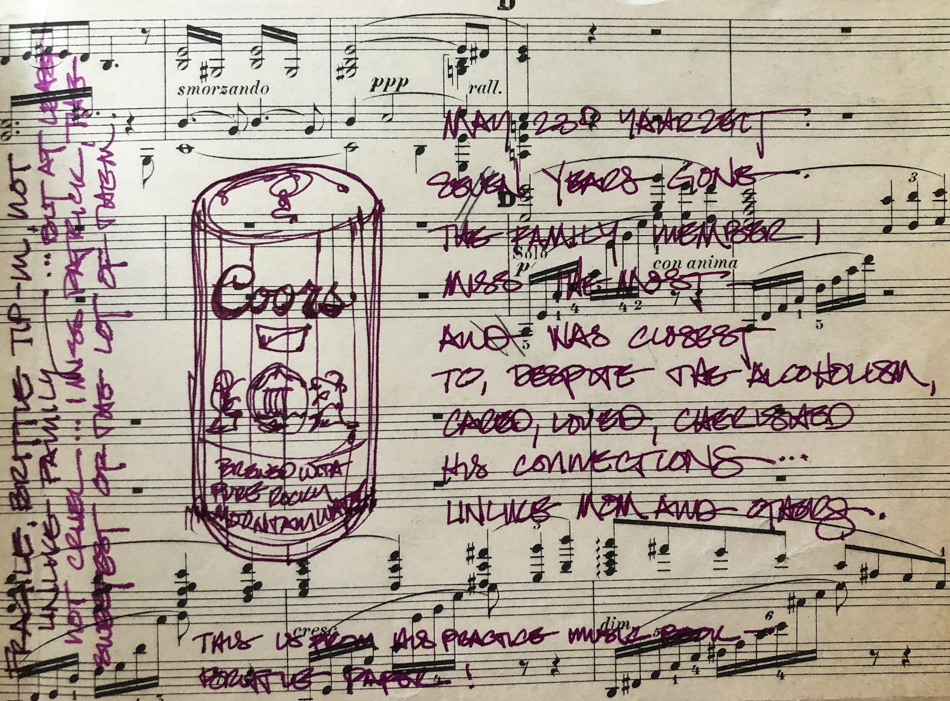 D
smorzando
ppp
rall.
MAY 23RD YAHRZEIT:
SEVEN YEARS GONE.
D
THE FAMILY MEMBER I
Solo
p
con anima
3
MISS THE MOST
AND WAS CLOSEST
TO, DESPITE THE ALCOHOLISM,
CARED, LOVED, CHERISHED
HIS CONNECTIONS...
UNLIKE MOM AND OTHERS.
Coors
BREWED WITH
PURE ROCKY
MOUNTAIN WATER
cresc
dim.
6
THIS IS FROM HIS PRACTICE MUSIC BOOK -
BRITTLE PAPER!
FRAGILE, BRITTLE TIP-IN, NOT
UNLIKE FAMILY... BUT AT LEAST
NOT CRUEL... I MISS PATRICK, THE
SWEETEST OF THE LOT OF THEM.